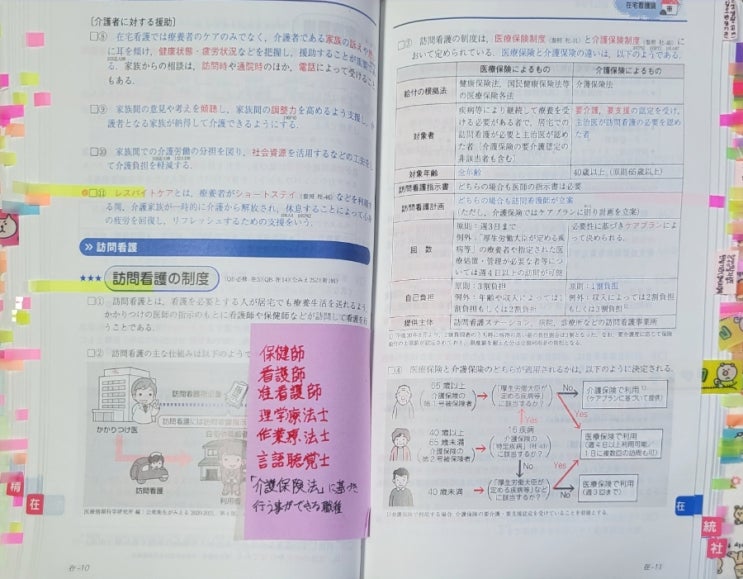 [介護者に対する援助]
□⑧ 在宅看護では療養者のケアのみでなく，介護者である家族の訴え
に耳を傾け，健康状態・疲労状況などを把握し，援助することが
る．家族からの相談は，訪問時や通院時のほか，電話によって受けること
もある．
□⑨ 家族間の意見や考えを傾聴し，家族間の調整力を高めるよう支援し，
護者となる家族が納得して介護できるようにする．
□⑩ 家族間での介護労働の分担を図り，社会資源を活用するなどの工夫をし
て介護負担を軽減する．
□⑪ レスパイトケアとは，療養者がショートステイ などを利用
する間，介護者が一時的に介護から解放され，休息することによって心身
の疲労を回復し，リフレッシュするための支援をいう．
≫ 訪問看護
★★★ 訪問看護の制度
□① 訪問看護とは，看護を必要とする人が居宅でも療養生活を送れるよう，
かかりつけの医師の指示のもとに看護師や保健師などが訪問して看護を行
うことである．
□② 訪問看護の主な仕組みは以下のよう
訪問看護指示書
かかりつけ医
訪問看護には訪問看護
訪問看護
利用者
保健師
看護師
准看護師
理学療法士
作業療法士
言語聴覚士
「介護保険法」に基づき
行う事ができる職種
医療情報科学研究所 編：公衆衛生がみえる 2020-2021，第4版
在-10
精
在
在宅看護論
□③ 訪問看護の制度は，医療保険制度 と介護保険制度 に
おいて定められている．医療保険と介護保険の違いは，以下のようである．
医療保険によるもの 介護保険によるもの
給付の根拠法 健康保険法，国民健康保険法等の医療保険各法 介護保険法
対象者 疾病等により継続して療養を受ける必要がある者で，居宅での訪問看護が必要と主治医が認めた者〔介護保険の要介護認定の非該当者も含む〕 要介護，要支援の認定を受け，主治医が訪問看護の必要を認めた者
対象年齢 全年齢 40歳以上（原則65歳以上）
訪問看護指示書 どちらの場合も医師の指示書は必要
訪問看護計画 どちらの場合も訪問看護師が立案
（ただし，介護保険ではケアプランに則り計画を立案）
回 数 原則：週3日まで
例外：「厚生労働大臣が定める疾病等」の療養者や指定された医療処置・管理が必要な者等については週4日以上の訪問が可能
必要性に基づきケアプランによって決められる．
自己負担 原則：3割負担
例外：年齢や収入によっては1割負担もしくは2割負担
原則：1割負担
例外：収入によっては2割負担もしくは3割負担
提供主体 訪問看護ステーション，病院，診療所などの訪問看護事業所
□④ 医療保険と介護保険のどちらが適用されるかは，以下のように決定される．
65歳以上
介護保険の
第1号被保険者
「厚生労働大臣が
定める疾病等」
に該当するか？
No
介護保険で利用
（ケアプランに基づいて提供）
Yes
40歳以上
65歳未満
介護保険の
第2号被保険者
16疾病
介護保険の
特定疾病
に該当するか？
Yes
医療保険で利用
（週4日以上利用可能／
1日に複数回の訪問も可）
No
Yes
40歳未満
「厚生労働大臣が
定める疾病等」など
に該当するか？
No
医療保険で利用
（週3日まで）
在-11
在
統
社